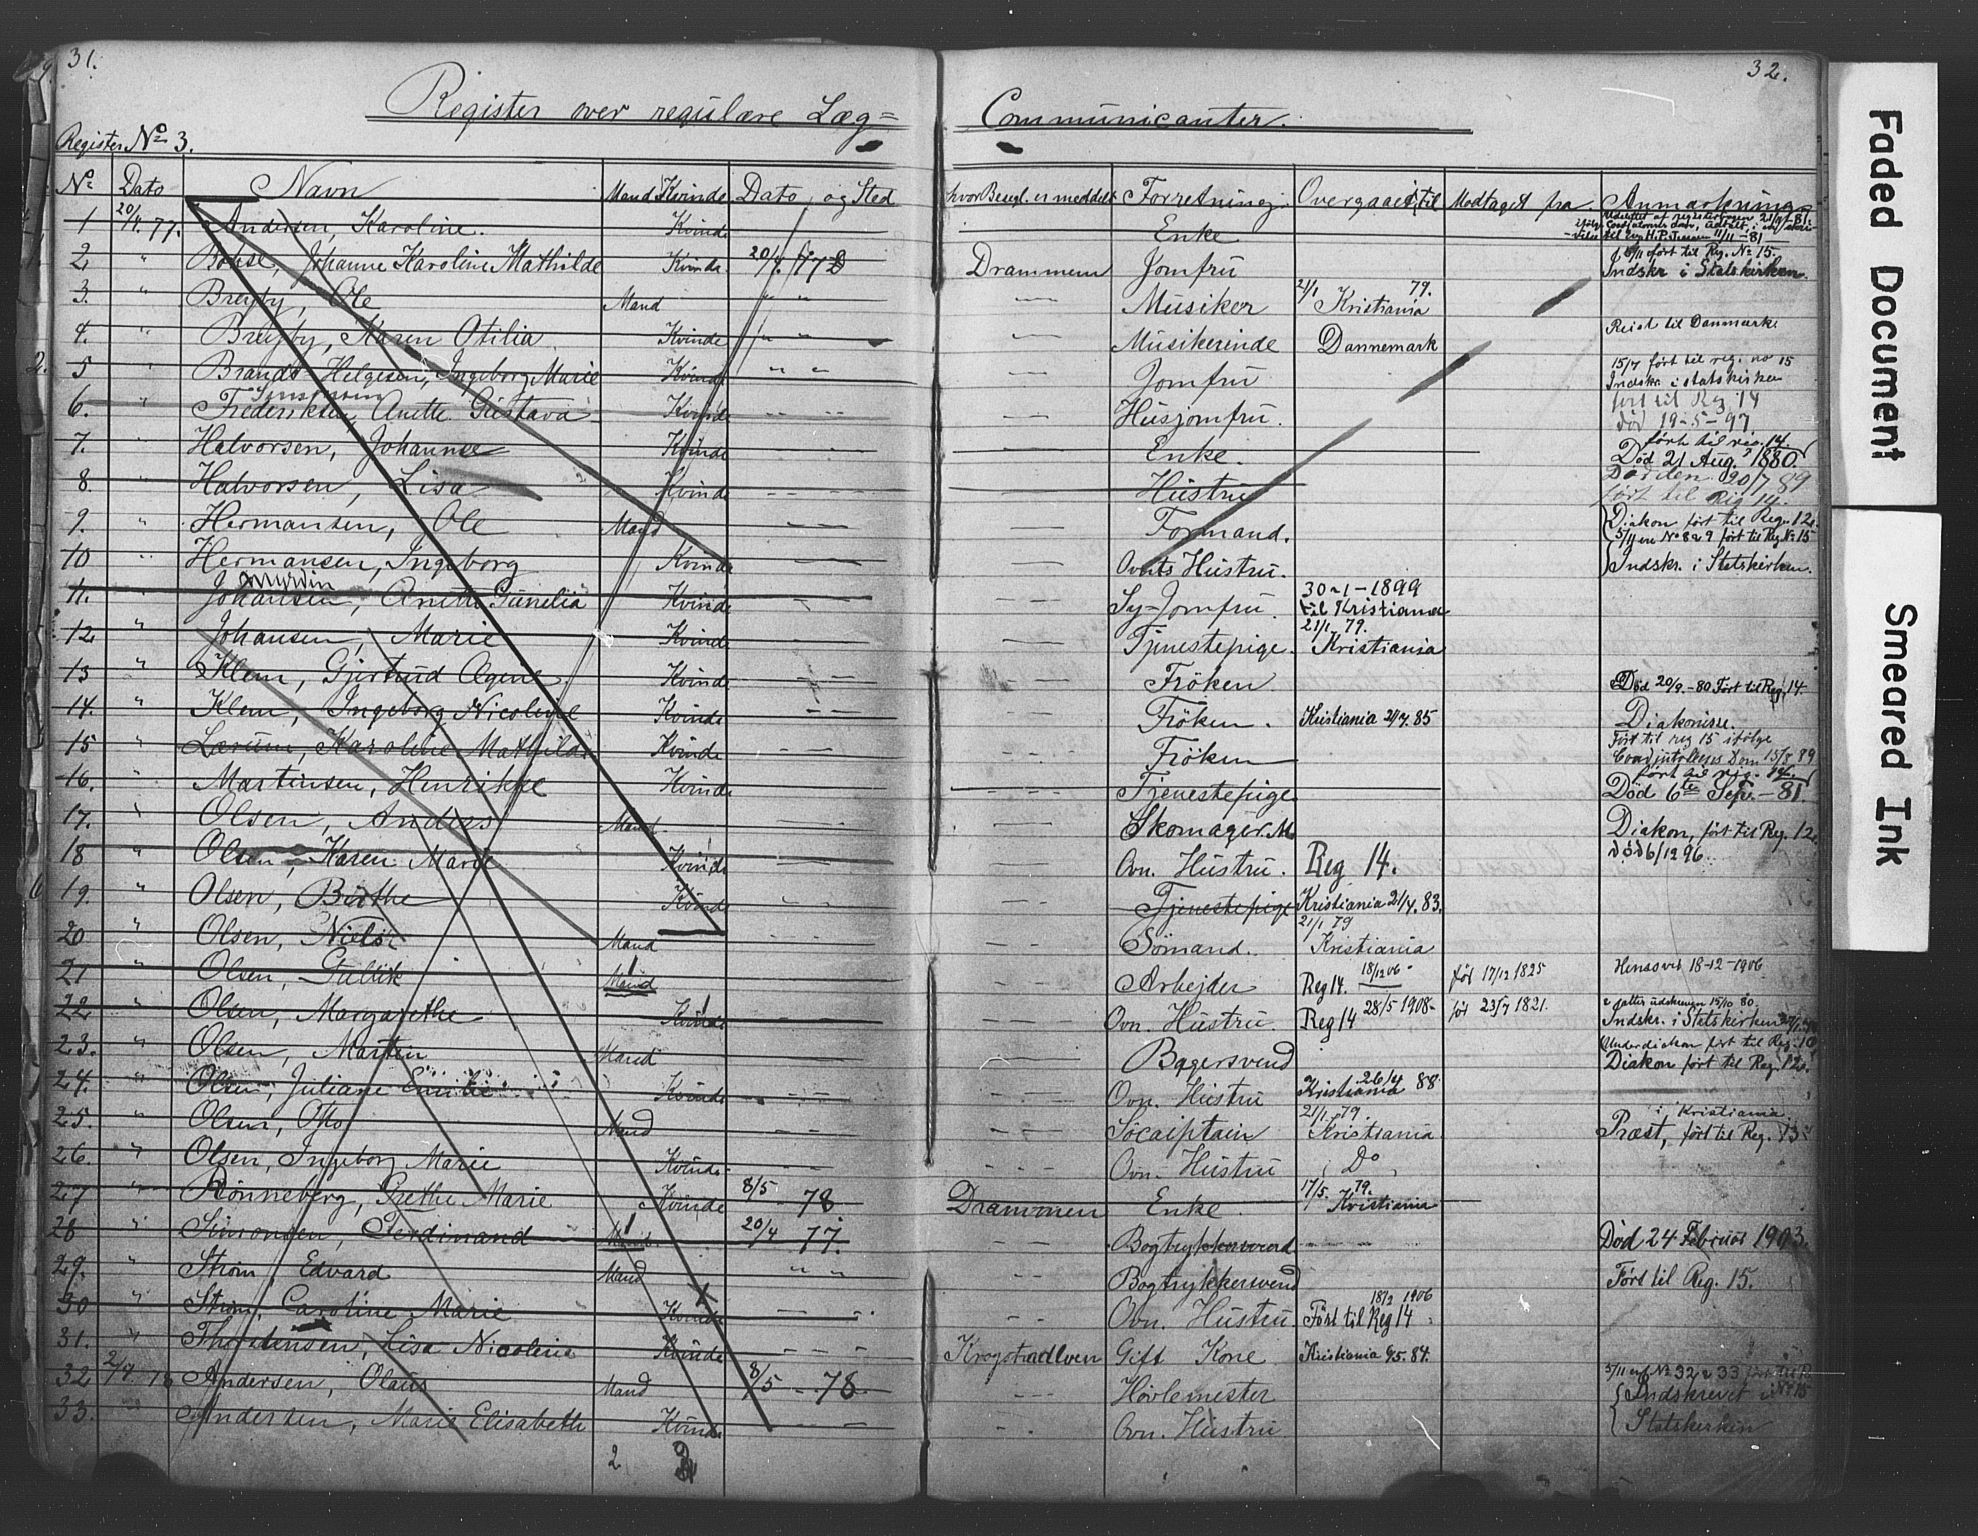 31.
32.
Register over regulære Læg= Communicanter.
Register No 3.
No Dato Navn Mand Kvinde Dato og Sted hvor Besegl. er meddelt Forretning Overgaaet til Modtaget fra Anmærkning
1 20/4. 77. Andersen, Karoline. Kvinde — Enke
2. " Bohse, Johanne Karoline Mathilde Kvinde 20/4. 77 Drammen Jomfru 5/11 ført til Reg. No 15. Indskr i Statskirken.
3. " Breyby, Ole Mand " " — Musiker 21/1 79. Kristiania
4. " Breyby, Karen Otilia. Kvinde " " — Musikerinde Dannemark Reist til Danmark
5 " Brandt-Helgesen, Ingeborg Marie Kvinde " " — Jomfru 15/7 ført til reg. no 15 Indskr. i statskirken
6. " Frederiksen, Anette Gustava Kvinde — — Husjomfru. ført til Reg 14 død 19-5-97
7. " Halvorsen, Johanne Kvinde — — Enke. ført til reg. 14. Død 21 Aug. 1880.
8. " Halvorsen, Lisa Kvinde — — Hustru Død den 20/7 89 ført til Reg 14.
9. " Hermansen, Ole Mand — — Formand. Diakon ført til Reg. 12.
10 " Hermansen, Ingeborg Kvinde — — Ovnts Hustru. 5/11 No 8 & 9 ført til Reg No 15 Indskr. i Statskirken.
11. " Johansen, Anette Gunelia Kvinde — — Sy-Jomfru. 30-1-1899 til Kristiania
12. " Johansen, Marie Kvinde — — Tjenestepige. 21/1. 79. Kristiania
13 " Klem, Gjertrud Agnes. Kvinde — — Fröken. Død 20/9.-80 Ført til Reg 14
14. " Klem, Ingeborg Nicoline Kvinde — — Fröken. Kristiania 21/7. 85 Diakonisse.
15 " Lærum, Karoline Mathilde Kvinde — — Fröken Ført til reg 15 ifølge Coadjutor Dom 15/8 89
16. " Martinsen, Henrikke Kvinde — Tjenestepige ført til reg. 14. Død 6te Sept. -81.
17. " Olsen, Anders Mand. — — Skomager.M. Diakon, ført til Reg. 12.
18 " Olsen, Karen Marie Kvinde — — Ovn. Hustru. Reg 14. död 6/12 96.
19. " Olsen, Birthe Kvinde — — Tjenestepige Kristiania 21/7. 83.
20 " Olsen, Niels Mand — — Sömand. 21/1 79 Kristiania
21 " Olsen, Gullik Mand — — Arbejder Reg 14. 18/12 06 föt 17/12 1825 Hensovet 18-12-1906
22 " Olsen, Margarethe Kvinde — — Ovn. Hustru. Reg 14 28/5 1908- föt 23/7 1821. Indskr. i Statskirken
23. " Olsen, Martin Mand Bagersvend Underdiakon ført til Reg. 10 Diakon ført til Reg. 12.
24. " Olsen, Juliane Emilie Kvinde — — Ovn. Hustru Kristiania 26/4 88
25. " Olsen, Otto Mand — — Söcaiptain 21/1. 79. Kristiania. i Kristiania. Præst, ført til Reg. 13
26. " Olsen, Ingeborg Marie Kvinde — — Ovn. Hustru Do
27 " Rönneberg, Grethe Marie Kvinde 8/5 78 Drammen Enke. 17/5. 79. Kristiania
28 " Simonsen, Ferdinand Mand 20/4 77. — Bogtrykkersvend Död 24 Februar 1903.
29. " Strøm, Edvard Mand " " — Bogtrykkersvend Ført til Reg. 15.
30 " Strøm, Caroline Marie Kvinde — — Ovn. Hustru. 18/2 1906 Ført til Reg 14
31. " Thorstensen, Lisa Nicoline Kvinde — — Krogstadelven Gift Kone Kristiania 9/5. 84.
32 2/4 78 Andersen, Olaus Mand 8/5 78. — Høvlemester 5/11 No 32 & 33 Indskrevet i
33. " Andersen, Marie Elisabeth Kvinde — — Ovn. Hustru Statskirken
2
Faded Document
Smeared Ink